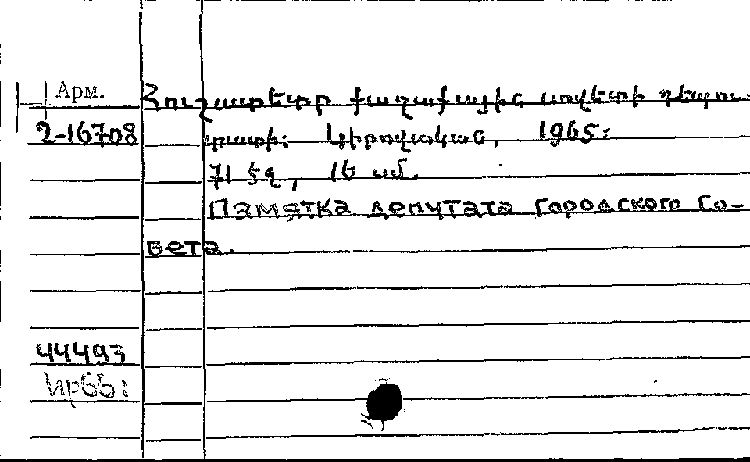 Арм.
Հուշատետր քաղաքային սովետի դեպու-
2-16708
տատի: Կիրովական, 1965:
71 էջ, 16 սմ.
Памятка депутата Городского Со-
вета.
44493